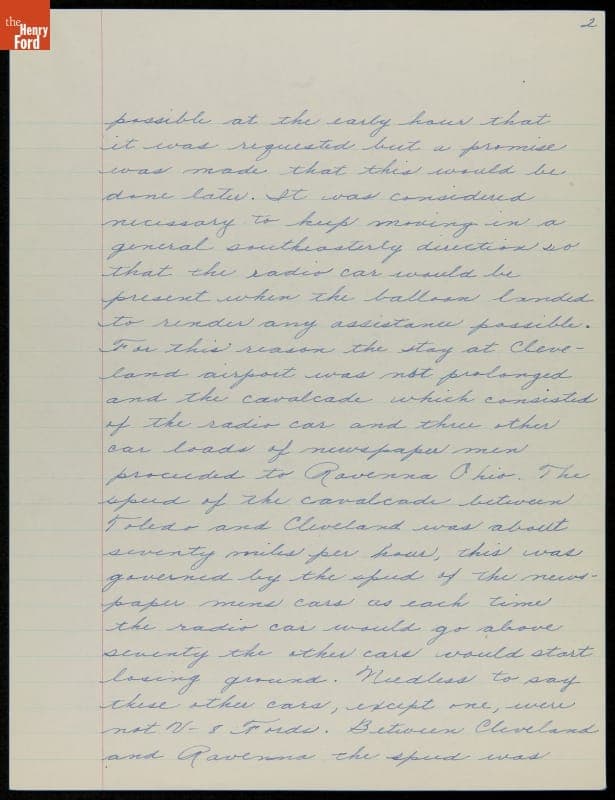 the
Henry
Ford
2
possible at the early hour that
it was requested but a promise
was made that this would be
done later. It was considered
necessary to keep moving in a
general southeasterly direction so
that the radio car would be
present when the balloon landed
to render any assistance possible.
For this reason the stay at Cleve-
land airport was not prolonged
and the cavalcade which consisted
of the radio car and three other
car loads of newspaper men
proceeded to Ravenna Ohio. The
speed of the cavalcade between
Toledo and Cleveland was about
seventy miles per hour, this was
governed by the speed of the news-
paper mens cars as each time
the radio car would go above
seventy the other cars would start
losing ground. Needless to say
these other cars, except one, were
not V-8 Fords. Between Cleveland
and Ravenna the speed was